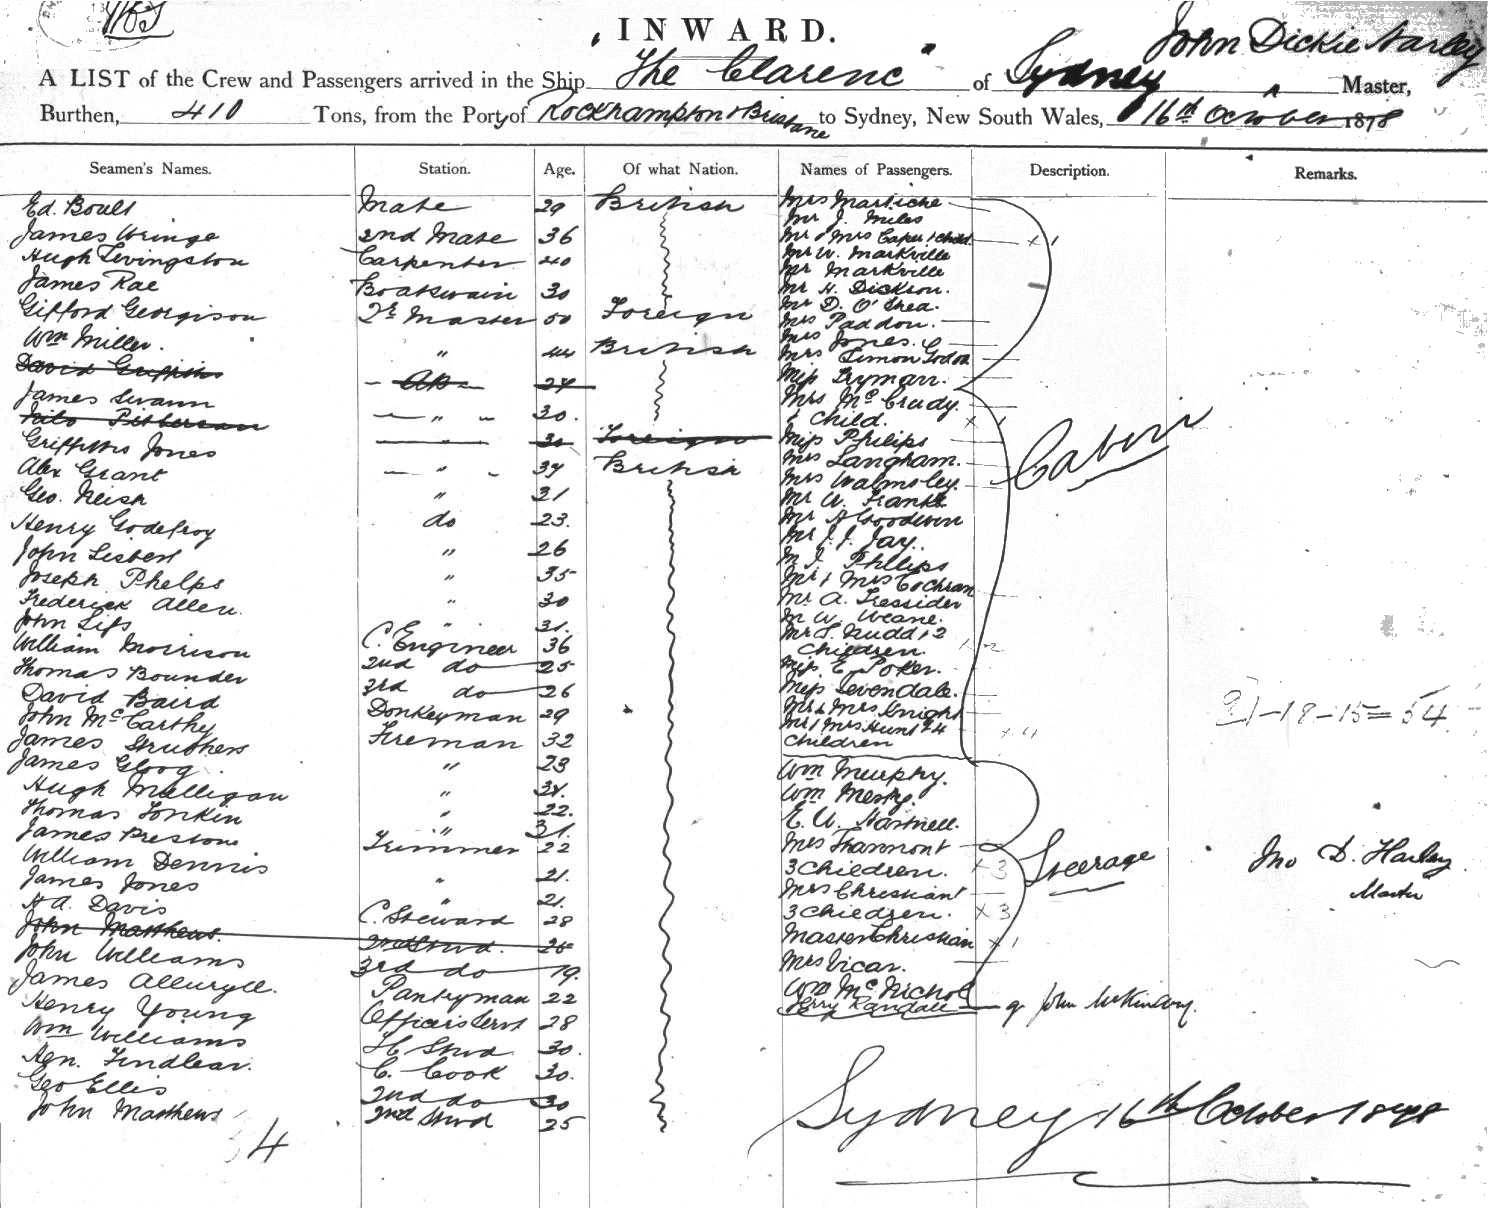 INWARD.
John Dickie Harley
A LIST of the Crew and Passengers arrived in the Ship "The Clarence" of Sydney Master,
Burthen, 410 Tons, from the Ports of Rockhampton & Brisbane to Sydney, New South Wales, 16th October 1878
Seamen's Names. Station. Age. Of what Nation. Names of Passengers. Description. Remarks.
Ed. Boult Mate 29 British
James Wringe 2nd Mate 36
Hugh Livingston Carpenter 40
James Rae Boatswain 30
Gifford Georgison Qr Master 50 Foreign
Wm Miller. " 44 British
David Griffiths AB 24
James Swann " 30.
Foreign
Griffiths Jones British
Alex Grant " 34
Geo. Neish " 21
Henry Godefroy do 23.
John " 26
Joseph Phelps " 35
Frederick Allen. " 30
John " 31.
William Morrison C. Engineer 36
Thomas Bounder 2nd do 25
David Baird 3rd do 26
John McCarthy Donkeyman 29
James Struthers Fireman 32
James Gloog " 23
Hugh Mulligan "
Thomas Tonkin " 22.
James Preston " 31.
William Dennis Trimmer 22
James Jones " 21.
H A. Davis " 21.
John Matthews. C. Steward 28
John Williams 2nd Stwd. 25
James 3rd do 19.
Henry Young Pantryman 22
Wm Williams Officers Servt 28
Stwd 30.
Geo Ellis C. Cook 30.
John Matthews 2nd do 30
2nd Stwd 25
4
Mrs
Mr J. Miles
Mr & Mrs Caper & child x 1
Mr W. Markville
Mr Markville
Mr H. Dickson.
Mr D. O'Shea.
Mrs Paddon.
Mrs Jones.
Mrs Simon
Miss Tryman.
Mrs McCrudy.
& Child. x 1
Miss Philips
Mrs Langham.
Mrs Walmsley.
Mr W. Frank
Mr A Goodwin
Mr J. J. Jay.
M J. Phillips
Mr & Mrs Cochran
Mr A. Tressider
M W. Weane.
Mr T. Rudd & 2
Children.
Miss E. Poker.
Miss Sevendale.
Mr & Mrs Knight
Mr & Mrs Hunt & 4
children x 4
Cabin
Wm Murphy.
Wm
E. W. Hartnell.
Mrs
3 Children. x 3
Mrs Christian
3 Children. x 3
Master Christian x 1
Mrs Vicar.
Wm McNichol
Randall
Steerage
21-18-15=54
Jno D. Harley
Master
Sydney 16th October 1878